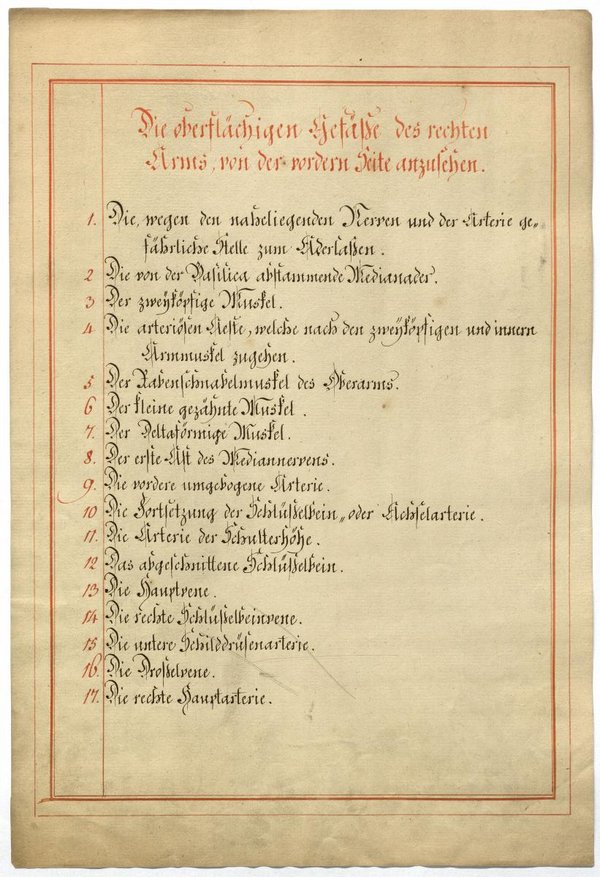 Die oberflächigen Gefäße des rechten
Arms, von der vordern Seite anzusehen.
1. Die, wegen den naheliegenden Nerven und der Arterie ge-
fährliche Stelle zum Aderlaßen.
2 Die von der Basilica abstammende Medianader.
3 Der zweyköpfige Muskel.
4 Die arteriösen Aeste, welche nach den zweyköpfigen und innern
Armmuskel zugehen.
5 Der Rabenschnabelmuskel des Oberarms.
6 Der kleine gezähnte Muskel.
7. Der Deltaförmige Muskel.
8. Der erste Ast des Mediannervens.
9. Die vordere umgebogene Arterie.
10 Die Fortsetzung der Schlüßelbein„ oder Achselarterie.
11. Die Arterie der Schulterhöhe.
12 Das abgeschnittene Schlüßelbein.
13 Die Hauptvene.
14 Die rechte Schlüßelbeinvene.
15 Die untere Schilddrüsenarterie.
16. Die Droßelvene.
17. Die rechte Hauptarterie.